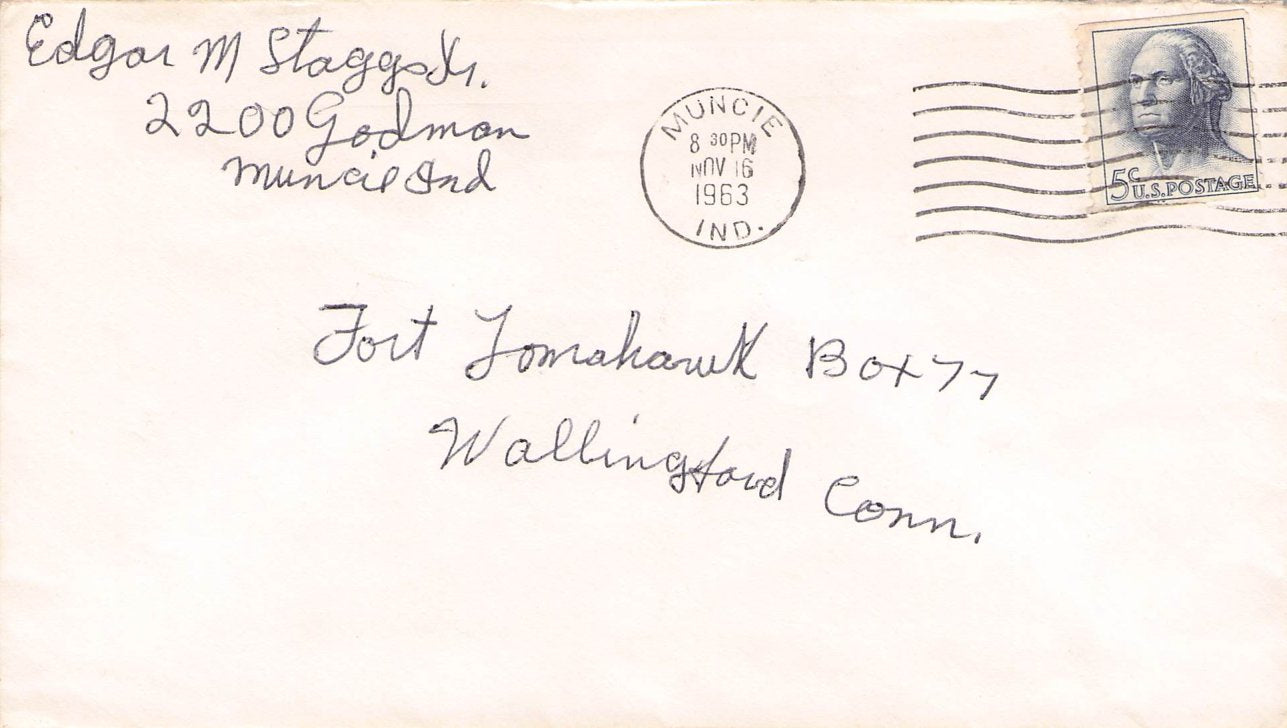 Edgar M Staggs Jr.
2200 Godman
Muncie Ind
MUNCIE
8 30 PM
NOV 16
1963
IND.
5c U.S. POSTAGE
Fort Tomahawk Box 77
Wallingford Conn.